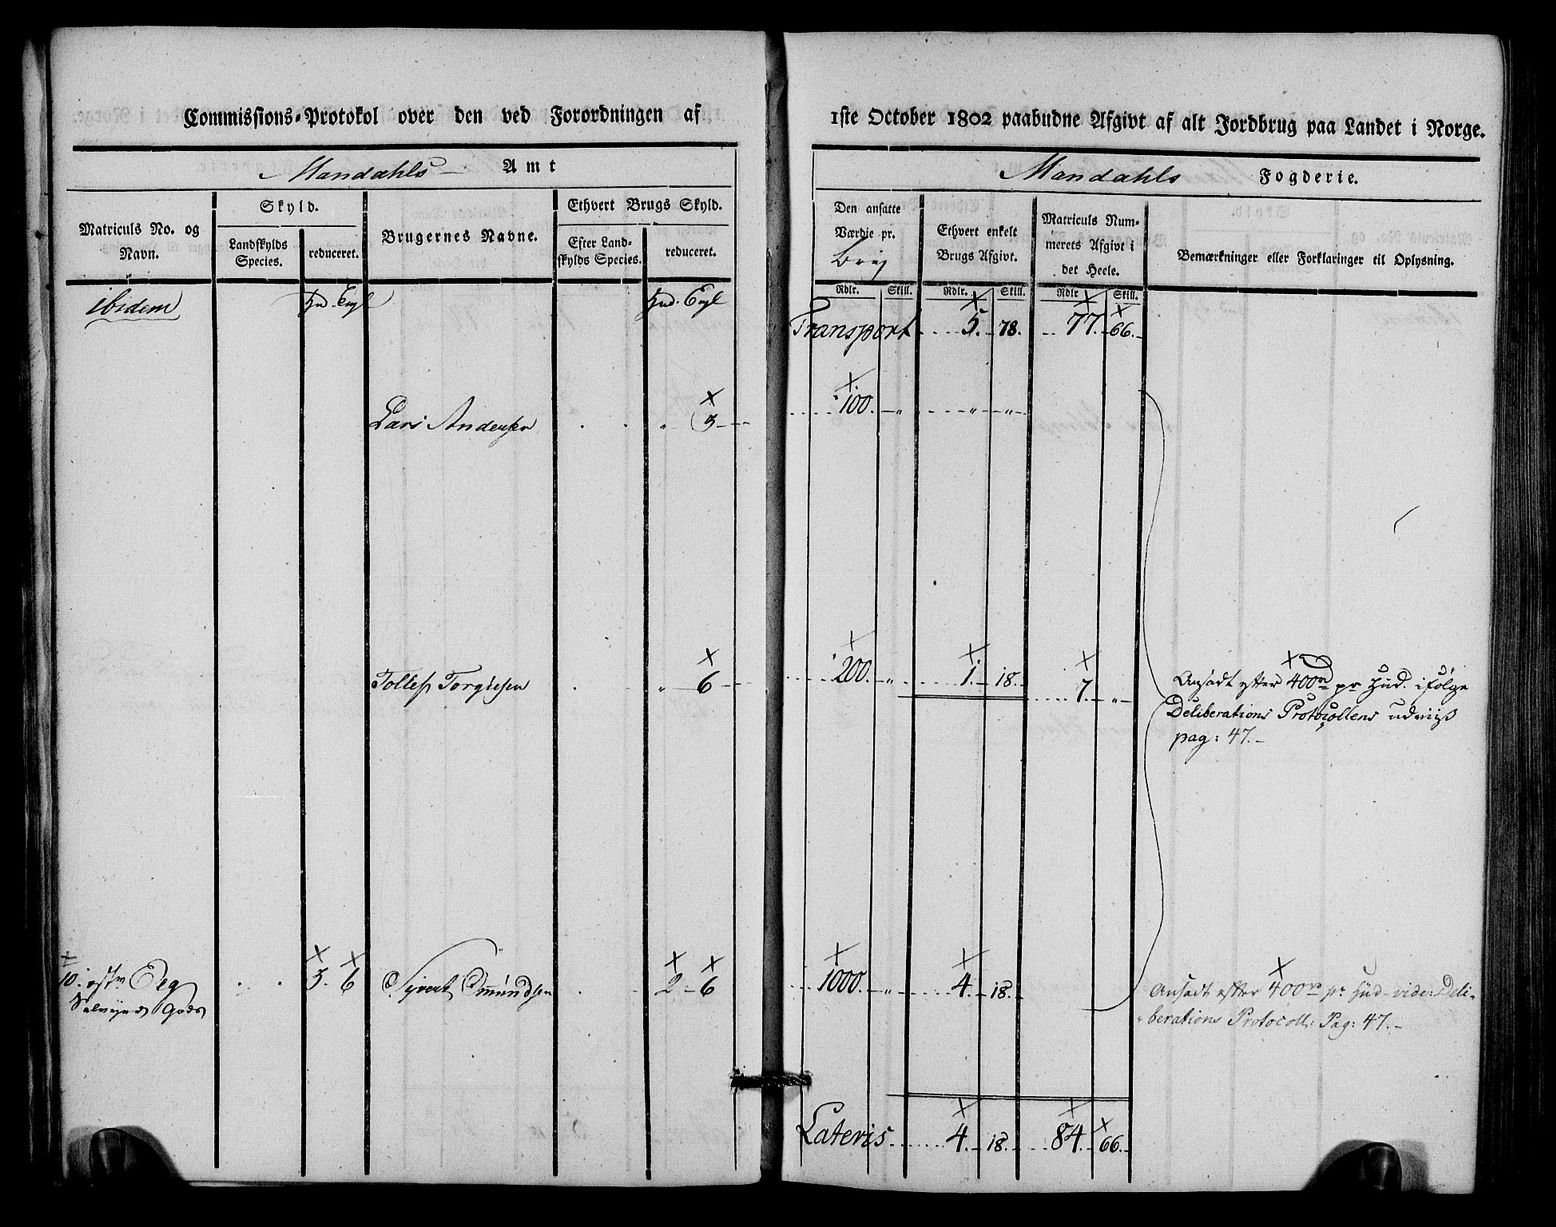 Commissions-Protokol over den ved Forordningen af 1ste October 1802 paabudne Afgivt af alt Jordbrug paa Landet i Norge.
Mandahls Amt
Mandahls Fogderie.
Matriculs No. og Navn.
Skyld.
Landskylds Species.
reduceret.
Brugernes Navne.
Ethvert Brugs Skyld.
Efter Landskylds Species.
reduceret.
Den ansatte Værdie pr. Brug
Ethvert enkelt Brugs Afgivt.
Matriculs Nummerets Afgivt i det Heele.
Bemærkninger eller Forklaringer til Oplysning.
Rdlr. Skill. Rdlr. Skill. Rdlr Skill.
ibidem Hud. Engl Hud. Engl
Transport 5. 78. 77. 66.
Lars Andersen " 3 100. " " "
Tollef Torgiesen " 6 200. " 1. 18. 7. "
Ansadt efter 400rd pr Hud. ifölge
Deliberations Protocollens udviis
pag: 47.
10. Eeg 3. 6 Syvert Omundsen 2 6 1000. " 4. 18.
Ansadt efter 400rd pr Hud vide: Deli-
berations Protocoll: Pag: 47.
Lateris 4. 18. 84. 66.